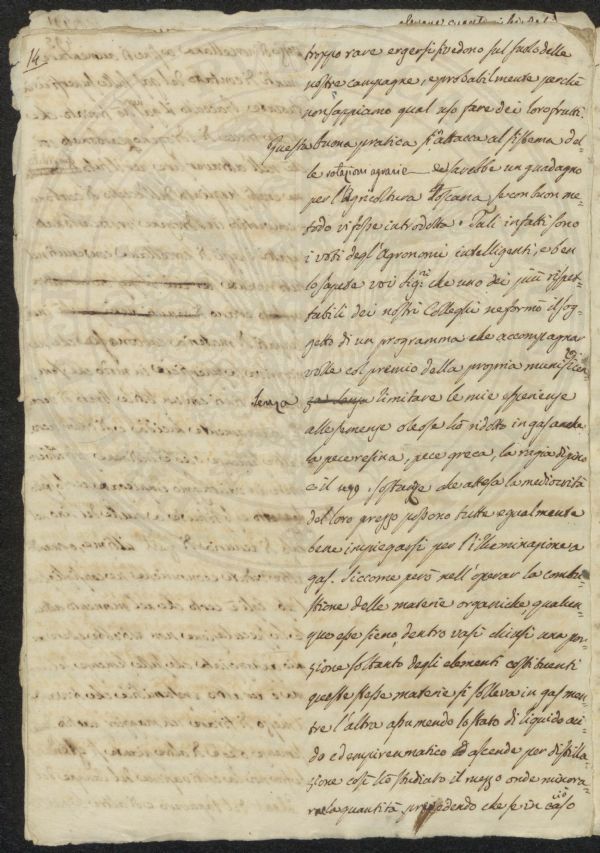 14
troppo rare ergersi si vedono sul suolo delle
nostre campagne, e probabilmente perchè
non sappiamo qual uso fare dei loro frutti.
Questa buona pratica si attacca al sistema del=
le rotazioni agrarie e sarebbe un guadagno
per l'Agricoltura Toscana, se con buon me=
todo vi fosse introdotta. Tali infatti sono
i voti degl'Agronomi intelligenti, e ben
lo sapete voi Sigri che uno dei più rispet=
tabili dei nostri Colleghi ne formò il sog=
getto di un programma che accompagnar
volle col premio della propria munificen=
za
Senza limitare le mie esperienze
alle semenze oleose hò ridotto in gas anche
la pece resina, pece greca, la ragia di pino
e il sego. sostanze che attesa la mediocrità
del loro prezzo possono tutte egualmente
bene impiegarsi per l'illuminazione a
gas. Siccome però nell'operar la combu=
stione delle materie organiche, qualun=
que esse sieno, dentro vasi chiusi una por=
zione soltanto degli elementi costituenti
queste stesse materie si solleva in gas men=
tre l'altra assumendo lo stato di liquido aci=
do ed empireumatico ascende per distilla=
zione così hò studiato il mezzo onde minora=
re la quantità, prevedendo che se in ciò